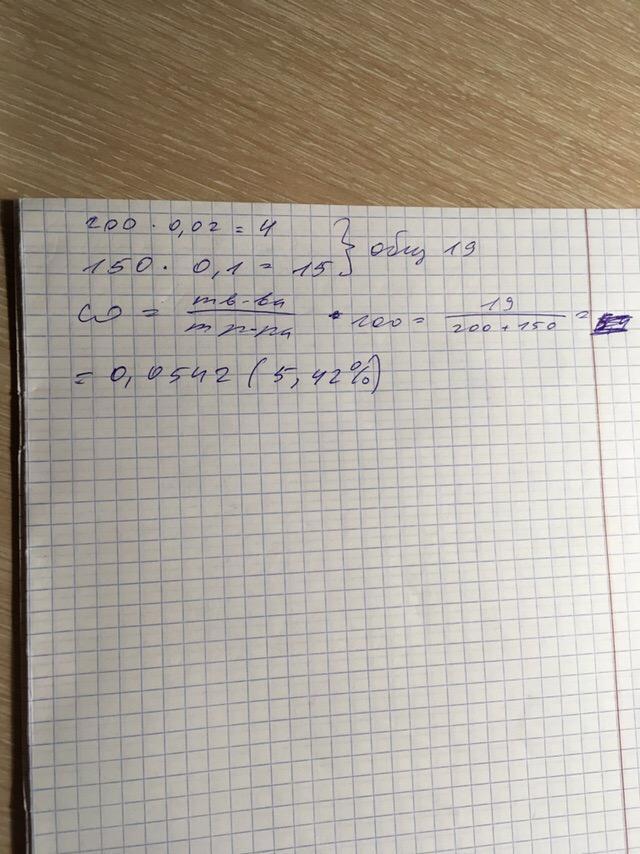 200 · 0,02 = 4
150 · 0,1 = 15 } общ 19
ω = mв-ва / mр-ра · 100 = 19 / 200 + 150 =
= 0,0542 (5,42%)